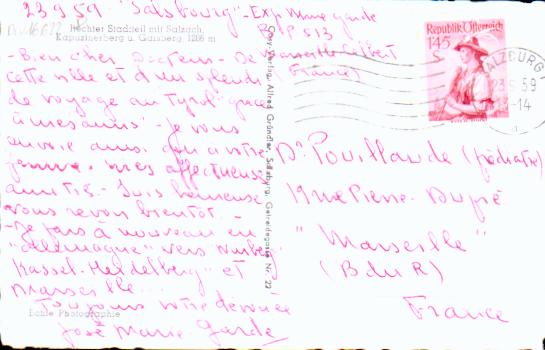 23 9 59 "Salsbourg" - Exp Mme garde
BP 513
Rechter Stadtteil mit Salzach,
Kapuzinerberg u. Gaisberg 1286 m
Marseille Colbert
(France)
- Bien cher Docteur - De
cette ville et d'un splendide
voyage au Tyrol "grâce
à mes amis" - Je vous
envoie ainsi qu'à votre
femme mes affectueuses
amitiés - Suis heureuse
vous revoir bientôt -
- Je pars à nouveau en
"Allemagne" vers
Kassel - Heidelberg" et
Marseille...
Toujours votre dévouée
José Marie Garde
Echte Photographie
Cosy-Verlag, Alfred Gründler, Salzburg, Getreidegasse Nr. 22
Republik Österreich
1.45
S
SALZBURG
23.9.59
-14
Dr Pouillaude (pédiatre)
1 Rue Pierre Dupré
"Marseille"
(B du R)
France